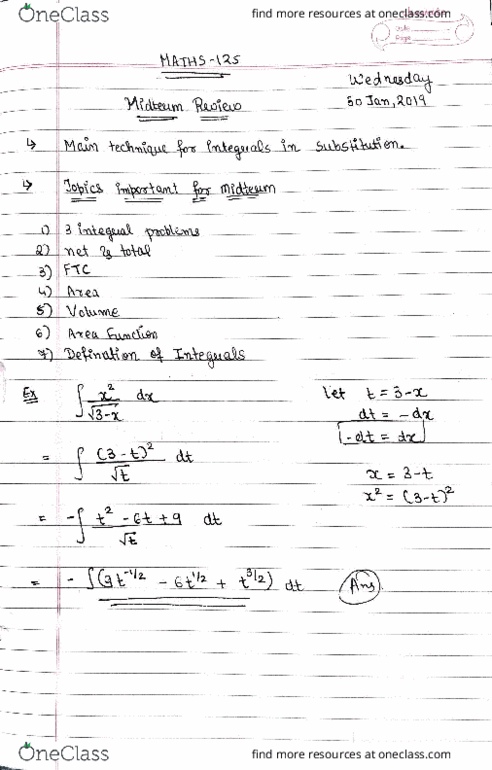 OneClass find more resources at oneclass.com
Date
Page
MATHS-125
Wednesday
Midterm Review 30 Jan, 2019
↳ Main technique for Integrals in Substitution.
↳ Topics important for midterm
1) 3 integral problems
2) net vs total
3) FTC
4) Area
5) Volume
6) Area Function
7) Defination of Integrals
Ex ∫ x²/√3-x dx let t = 3-x
dt = -dx
-dt = dx
= ∫ (3-t)²/√t dt
x = 3-t
x² = (3-t)²
= -∫ t² - 6t + 9/√t dt
= - ∫(9t^-1/2 - 6t^1/2 + t^3/2) dt Ans
OneClass find more resources at oneclass.com